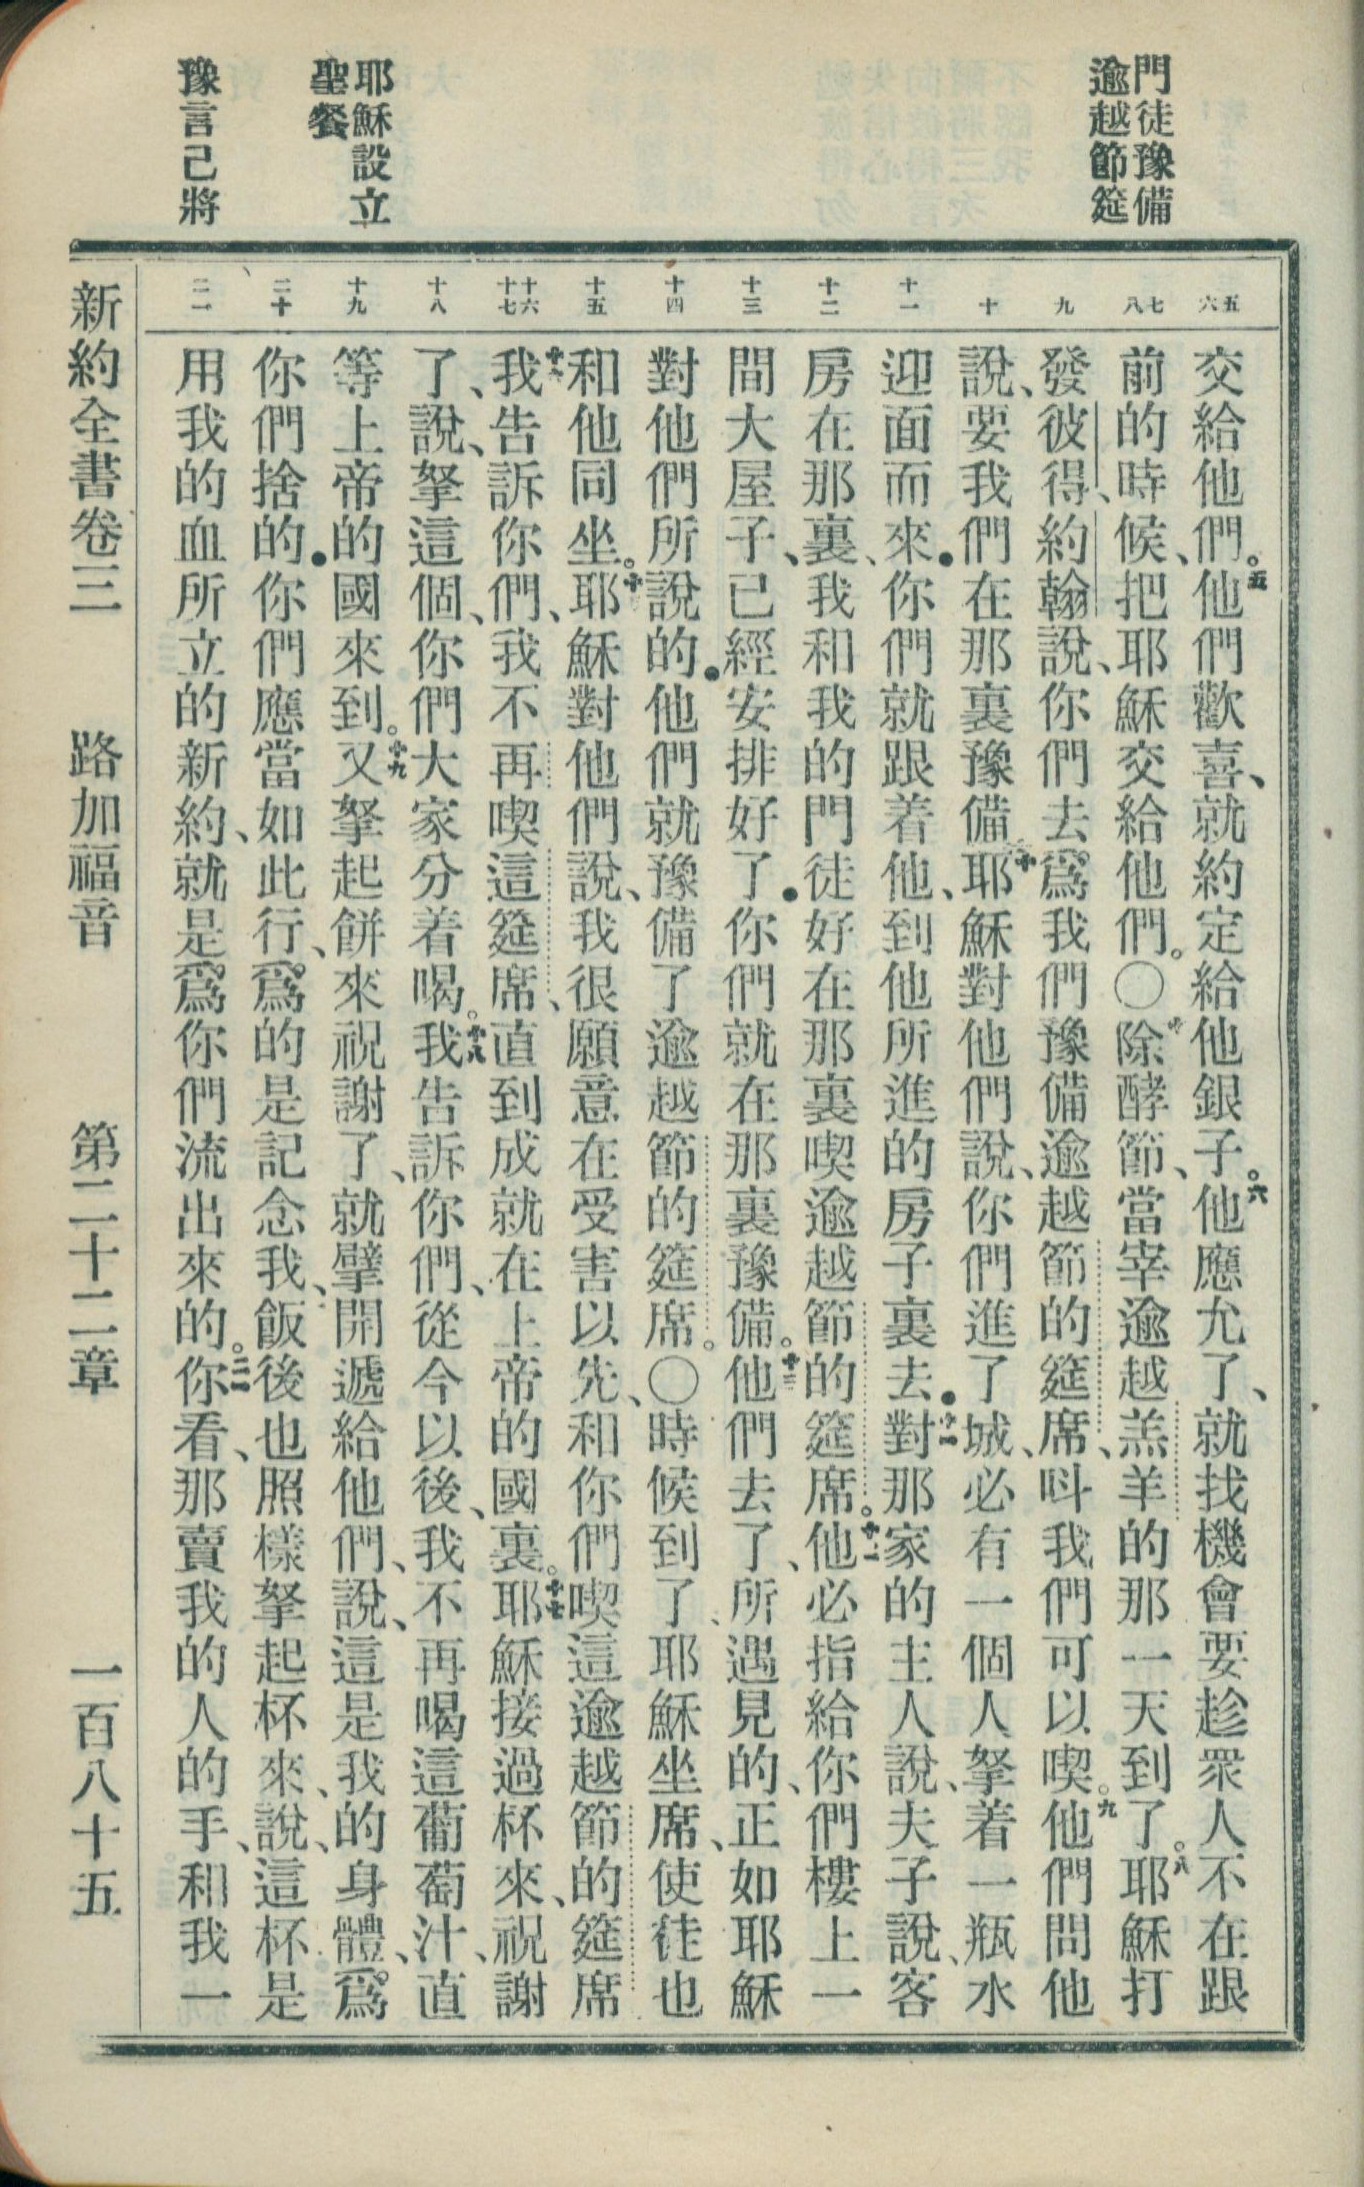 門徒豫備
逾越節筵
耶穌設立
聖餐
豫言己將
五
六
七
八
九
十
十一
十二
十三
十四
十五
十六
十七
十八
十九
二十
二一
交給他們。五他們歡喜、就約定給他銀子。六他應允了、就找機會要趁眾人不在跟
前的時候、把耶穌交給他們。○七除酵節、當宰逾越羔羊的那一天到了。八耶穌打
發彼得、約翰說、你們去爲我們豫備逾越節的筵席、呌我們可以喫。九他們問他
說、要我們在那裏豫備十耶穌對他們說、你們進了城、必有一個人拏着一瓶水
迎面而來.你們就跟着他、到他所進的房子裏去.十一對那家的主人說、夫子說、客
房在那裏、我和我的門徒好在那裏喫逾越節的筵席。十二他必指給你們樓上一
間大屋子、已經安排好了.你們就在那裏豫備。十三他們去了、所遇見的、正如耶穌
對他們所說的.他們就豫備了逾越節的筵席。○十四時候到了、耶穌坐席、使徒也
和他同坐。十五耶穌對他們說、我很願意在受害以先、和你們喫這逾越節的筵席
十六我告訴你們、我不再喫這筵席、直到成就在上帝的國裏。十七耶穌接過杯來、祝謝
了、說、拏這個、你們大家分着喝。十八我告訴你們、從今以後、我不再喝這葡萄汁、直
等上帝的國來到。十九又拏起餅來祝謝了、就擘開遞給他們、說、這是我的身體、爲
你們捨的.你們應當如此行、爲的是記念我、飯後也照樣拏起杯來、說、這杯是
用我的血所立的新約、就是爲你們流出來的。二一你看、那賣我的人的手、和我一
新約全書卷三　路加福音　第二十二章　一百八十五